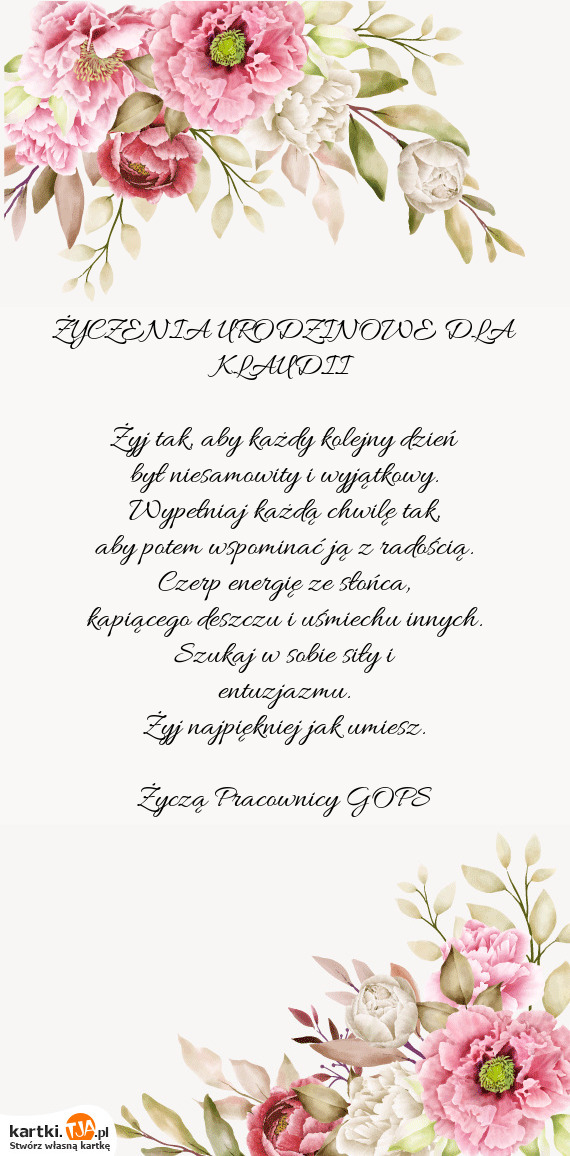 ŻYCZENIA URODZINOWE DLA
KLAUDII
Żyj tak, aby każdy kolejny dzień
był niesamowity i wyjątkowy.
Wypełniaj każdą chwilę tak,
aby potem wspominać ją z radością.
Czerp energię ze słońca,
kapiącego deszczu i uśmiechu innych.
Szukaj w sobie siły i
entuzjazmu.
Żyj najpiękniej jak umiesz.
Życzą Pracownicy GOPS
kartki.TJA.pl
Stwórz własną kartkę